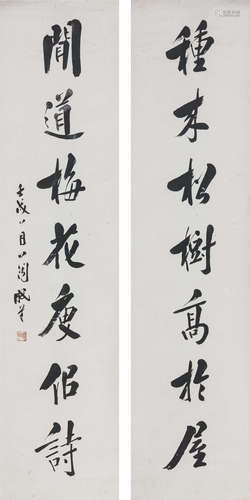 種来松樹高於屋
聞道梅花瘦佀詩
壬戌八月